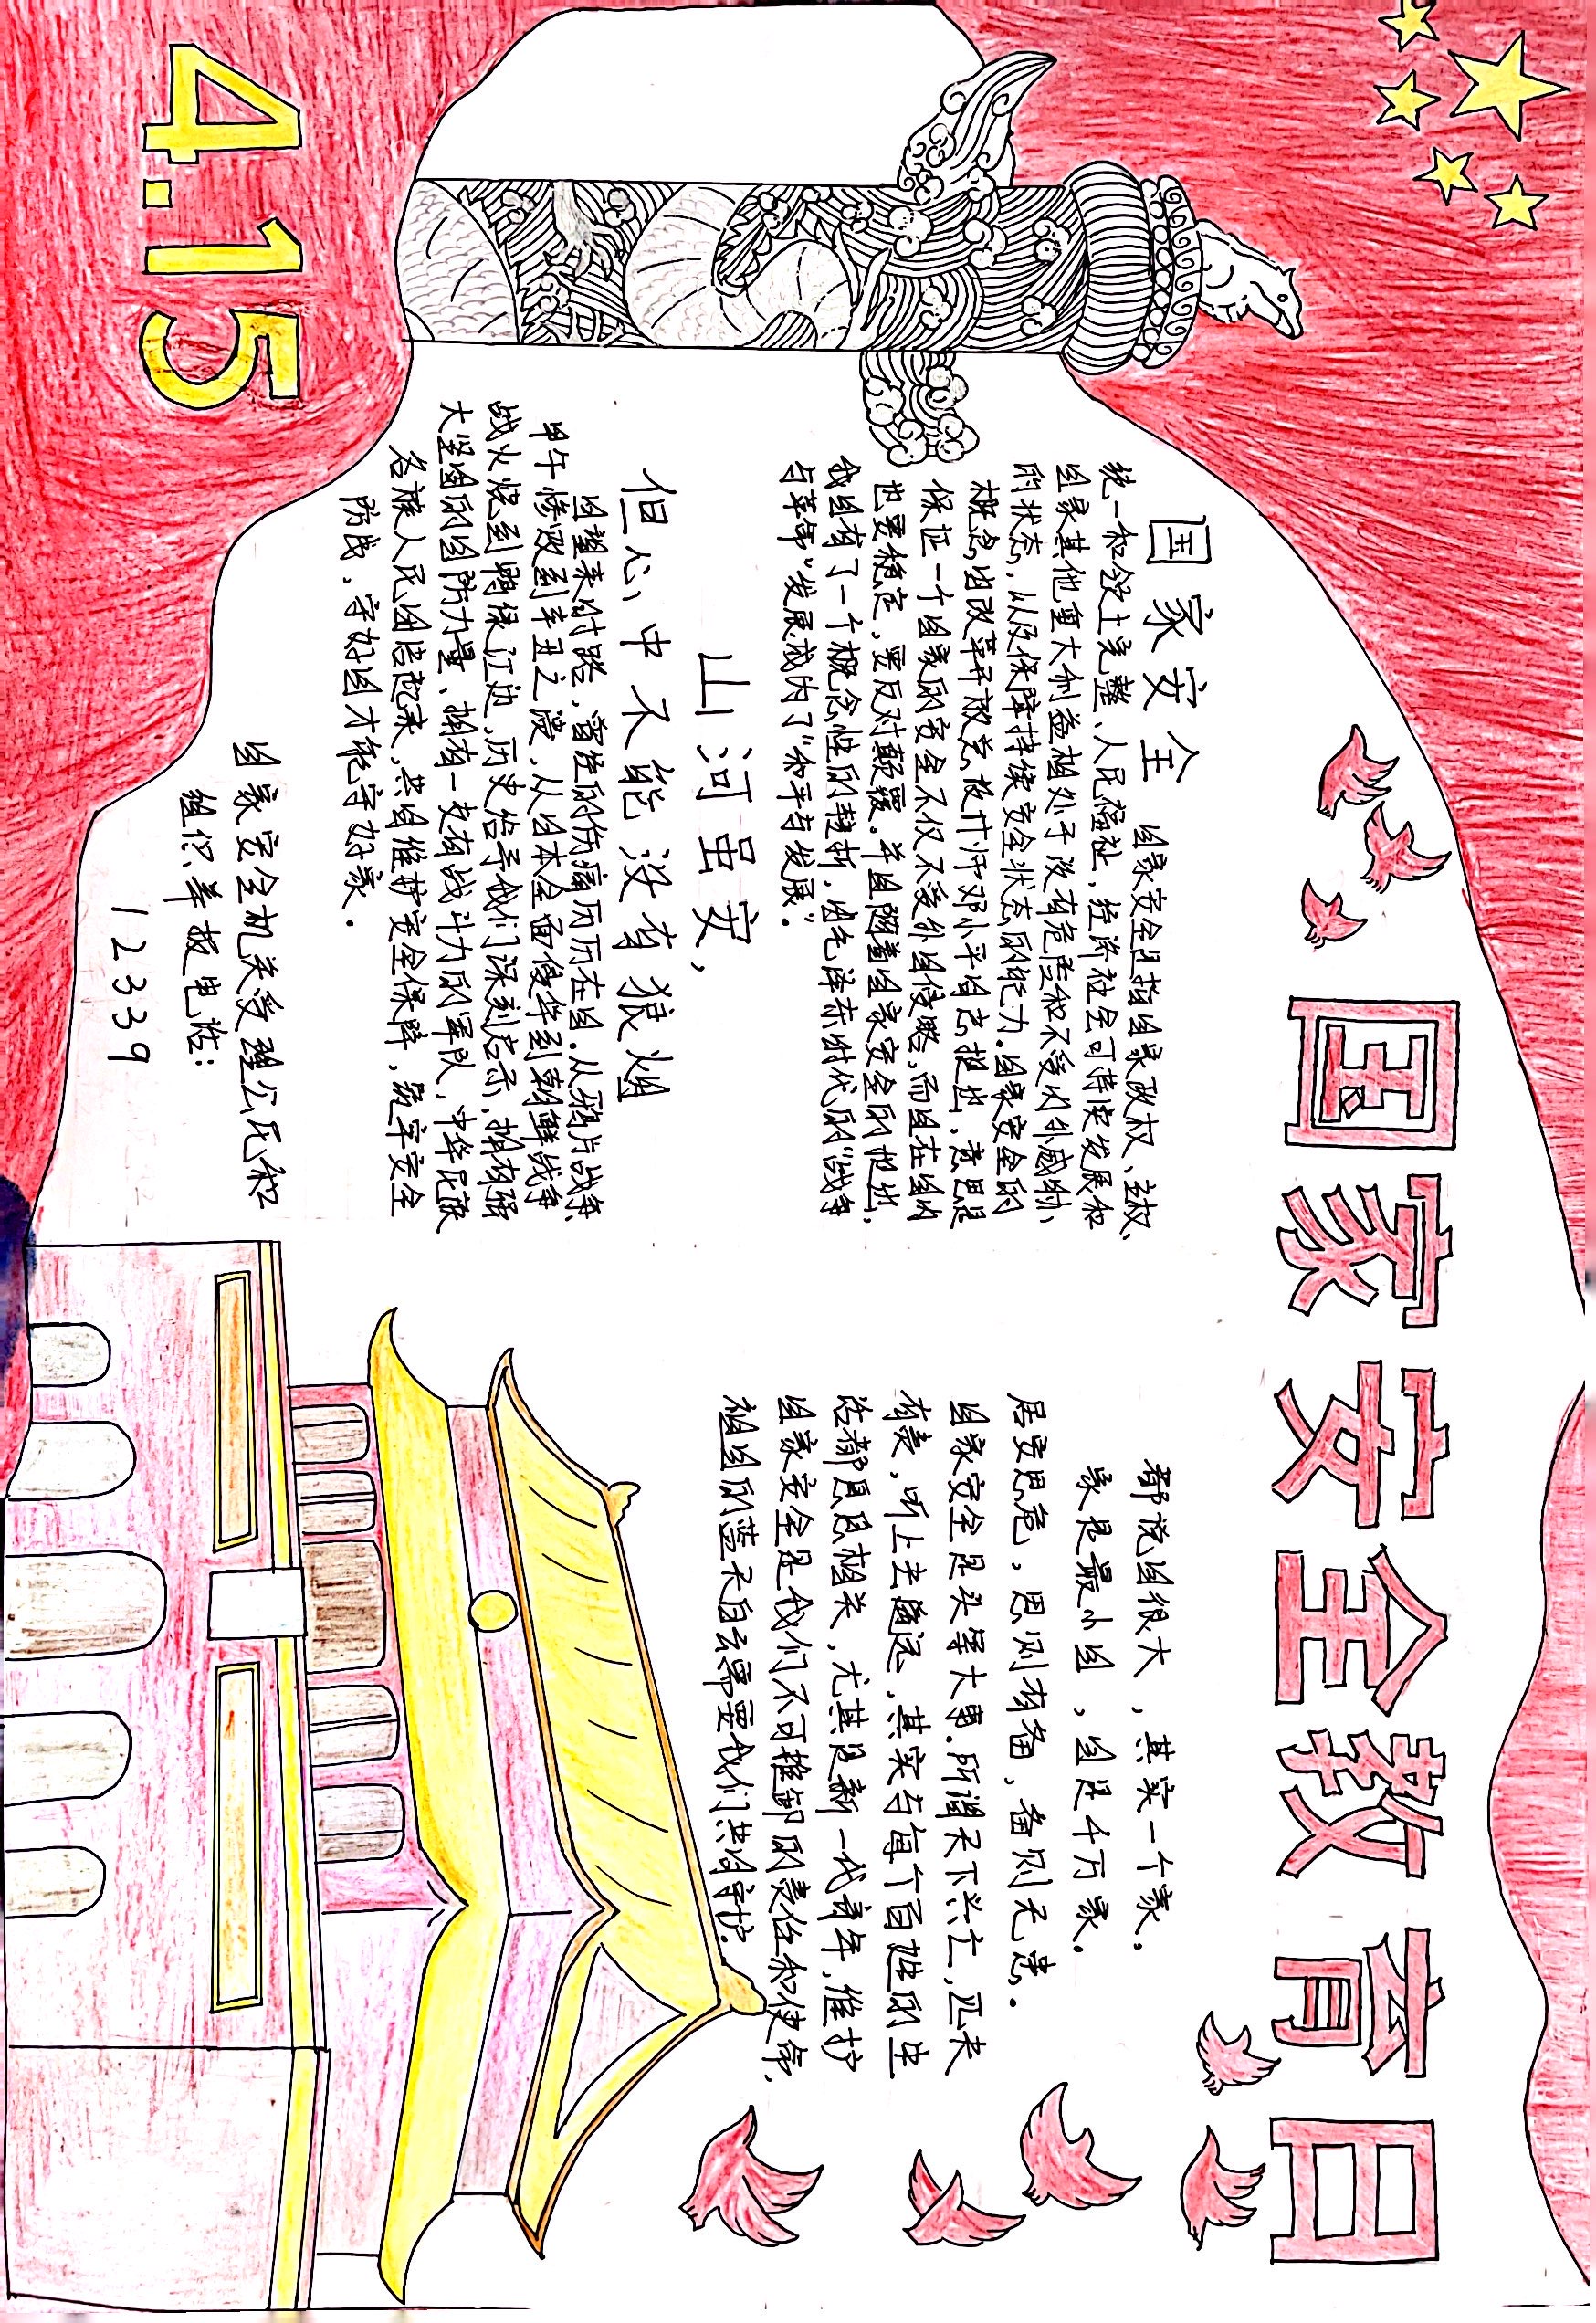 国家安全教育日
国家安全 国家安全是指国家政权、主权、
统一和领土完整、人民福祉,经济社会可持续发展和
国家其他重大利益相对于没有危险和不受内外威胁
的状态,以及保障持续安全状态的能力.国家安全的
概念由改革开放总设计师邓小平同志提出,意思是
保证一个国家的安全不仅不受外国侵略,而且在国内
也要稳定,要反对颠覆.并且随着国家安全的提出,
我国有了一个概念性的转折,由毛泽东时代的“战争
与革命”发展成为了“和平与发展”.
山河虽安,
但心中不能没有狼烟
回望来时路,曾经的伤痛历历在目.从鸦片战争、
甲午惨败到辛丑之没,从日本全面侵华到朝鲜战争
战火烧到鸭绿江边,历史给予我们深刻启示,拥有强
大坚固的国防力量、拥有一支有战斗力的军队,中华民族
各族人民团结起来,共同维护安全保障,筑牢安全
防线、守好国才能守好家.
国家安全机关受理公民和
组织举报电话:
12339
都说国很大,其实一个家,
家是最小国,国是千万家.
居安思危,思则有备,备则无患.
国家安全是头等大事.所谓天下兴亡,匹夫
有责,听上去遥远、其实与每个百姓的生
活都息息相关,尤其是新一代青年,维护
国家安全是我们不可推卸的责任和使命,
祖国的蓝天白云需要我们共同守护.
4.15